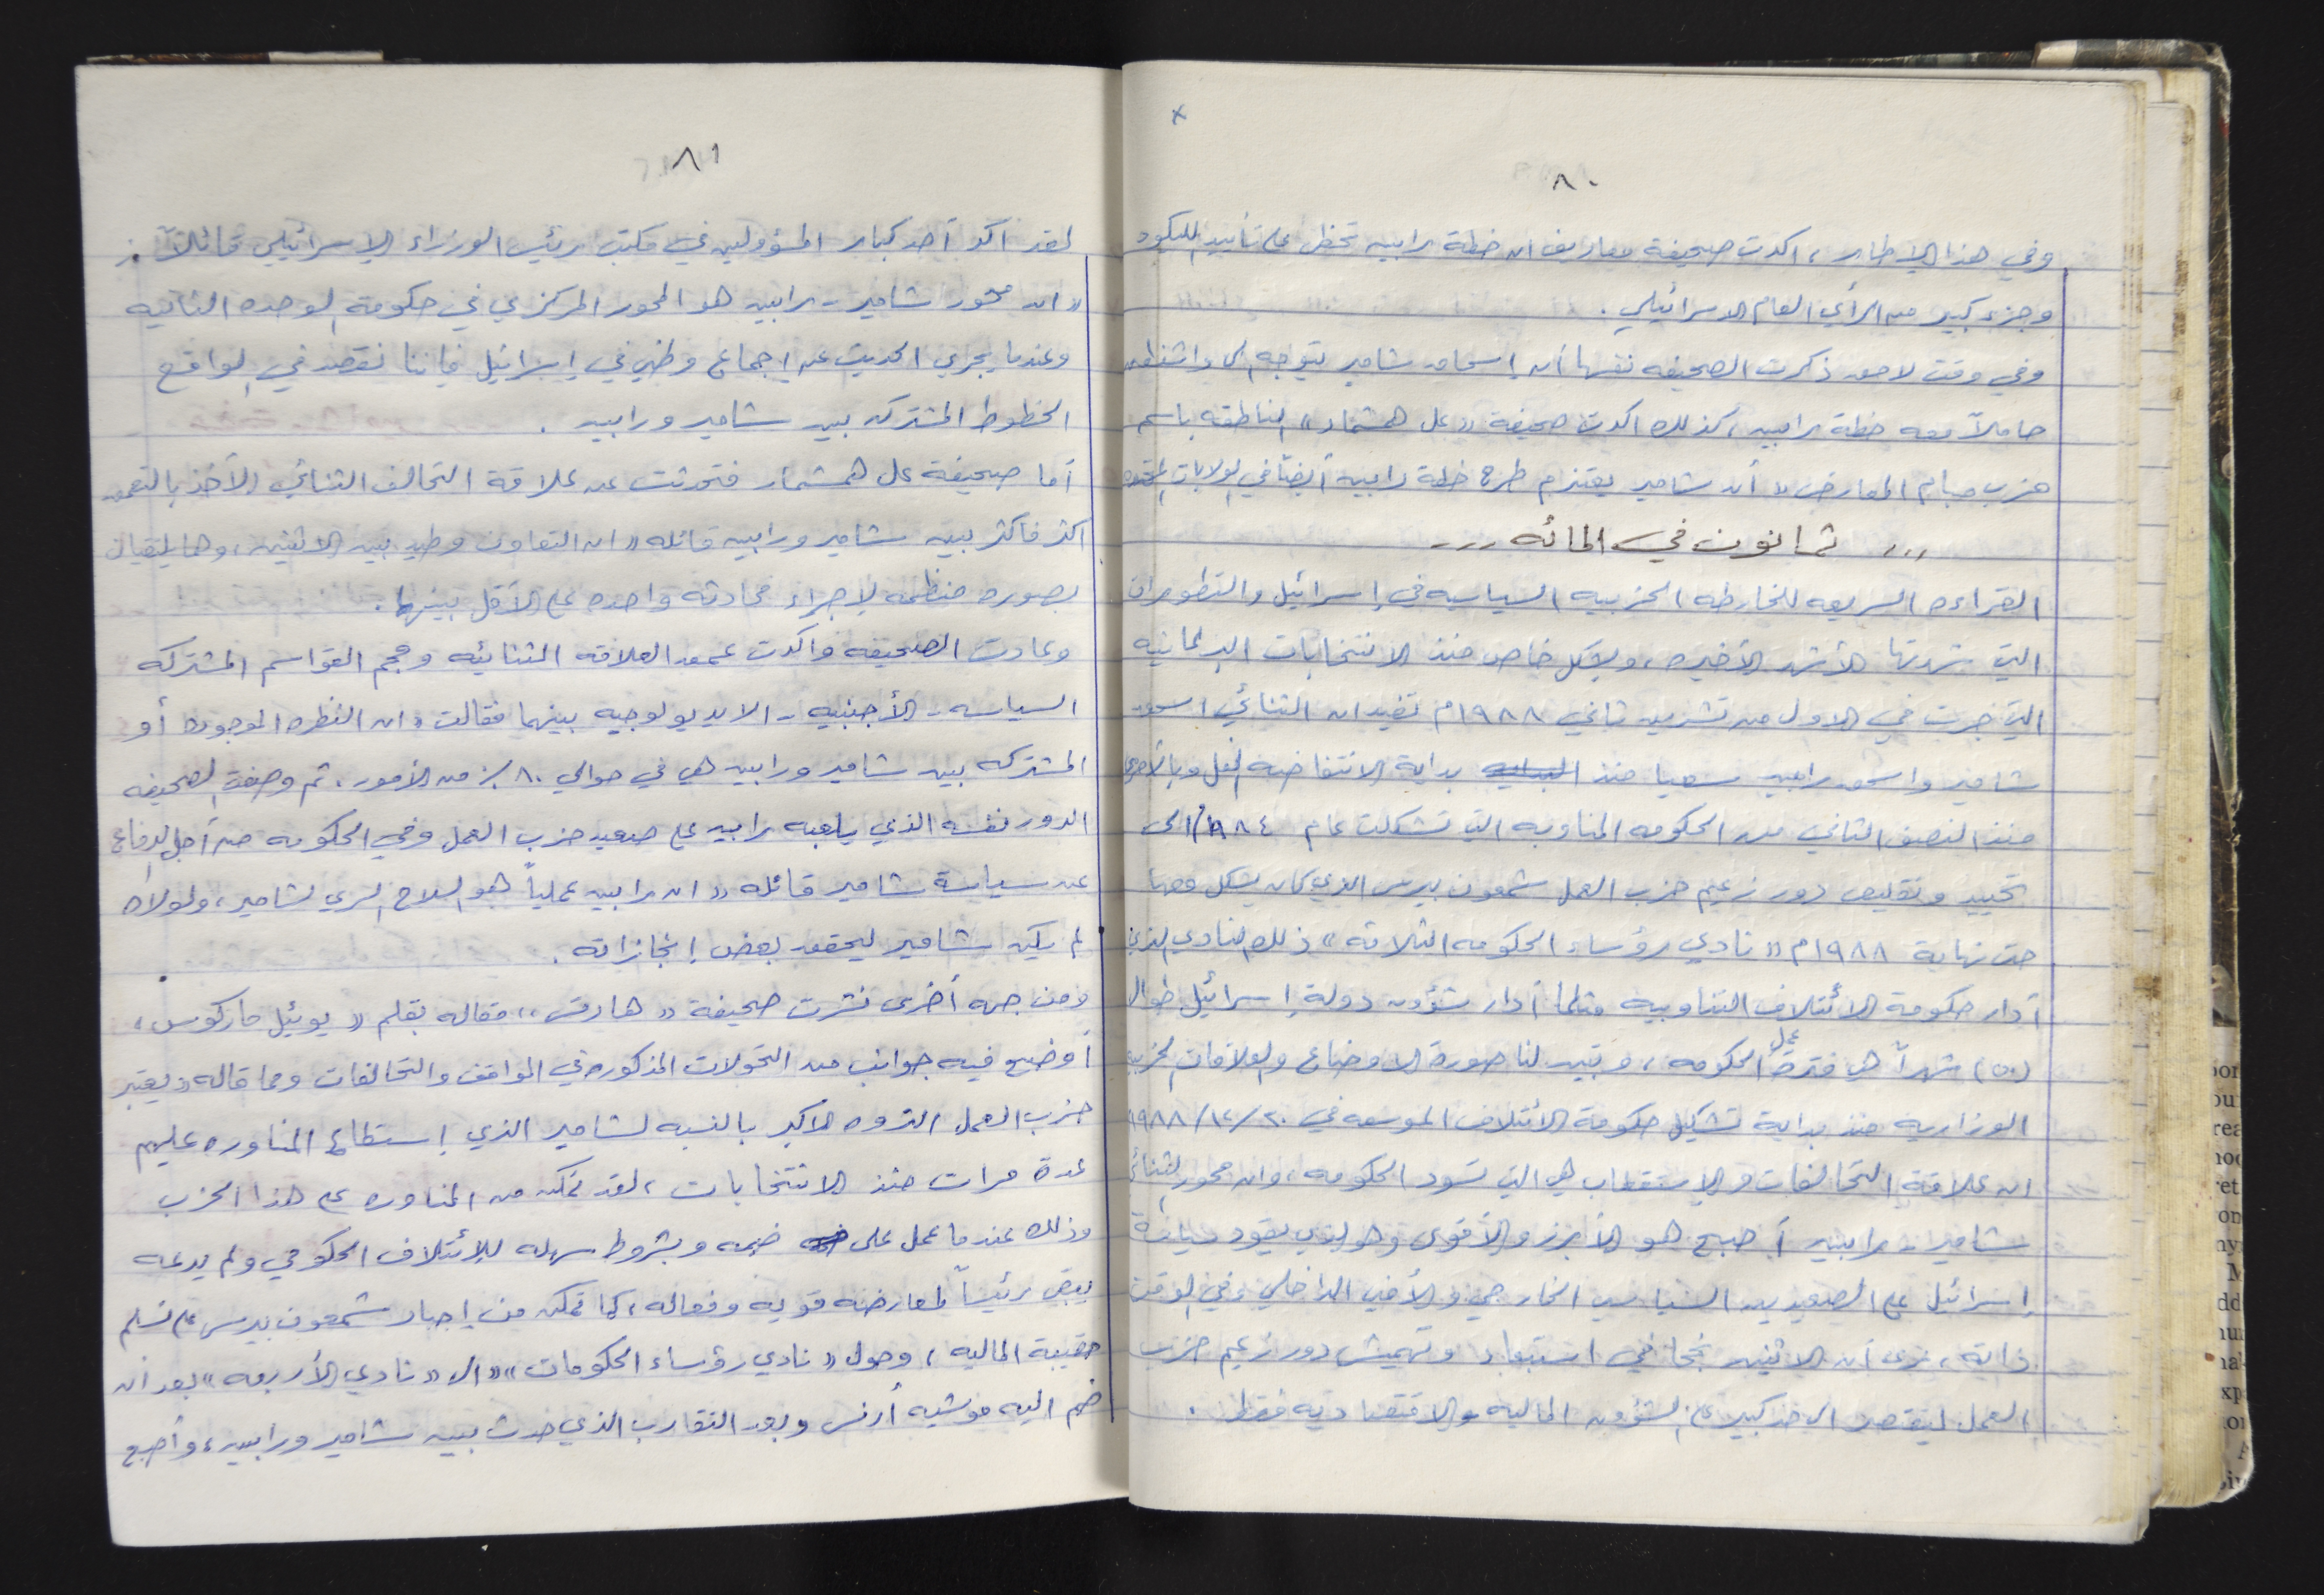 ٨٠
وفي هذا الإطار، اكدت صحيفة معاريف ان خطة رابين تحظى على تأييد الليكود
وجزء كبير من الرأي العام الاسرائيلي.
وفي وقت لاحق ذكرت الصحيفه نفسها أن إسحاق شامير يتوجه الى واشنطن
حاملاً معه خطة رابين، كذلك اكدت صحيفة «عل همشمار» الناطقه باسم
حزب مبام المعارض «أن شامير يعتزم طرح خطة رابين أيضاً في الولايات المتحده
,,, ثمانون في المائه ...
القراءه السريعه للخارطه الحزبيه السياسيه في إسرائيل والتطورات
التي شهدتها الأشهر الأخيره، وبشكل خاص منذ الانتخابات البرلمانيه
التي جرت في الاول من تشرين ثاني ١٩٨٨م تفيد ان الثنائي اسحق
شامير واسحق رابين سعيا منذ البدايه بداية الانتفاضه لفعل وبالأحرى
منذ النصف الثاني من الحكومه المناوبه التي تشكلت عام ١٩٨٤ الى
تحييد وتقليص دور زعيم حزب العمل شمعون بيرس الذي كان يشكل معهما
حتى نهاية ١٩٨٨م «نادي رؤساء الحكومه الثلاثه» ذلك النادي الذي
أدار حكومة الائتلاف التناوبيه مثلما أدار شؤون دولة إسرائيل طوال
(٥٠) شهراً هي فترة عمل الحكومه، وتبين لنا صورة الاوضاع والعلاقات الحزبيه
الوزاريه منذ بداية تشكيل حكومة الائتلاف الموسعه في ٢٠/١٢/١٩٨٨
ان علاقة التحالفات والاستقطاب هي التي تسود الحكومه، وان محور الثنائي
شامير - رابين أصبح هو الأبرز والأقوى وهو الذي يقود سياسة
إسرائيل على الصعيدين السياسي الخارجي والأمني الداخلي وفي الوقت
ذاته، نرى أن الاثنين نجحا في استبعاد وتهميش دور زعيم حزب
العمل ليقتصر الى حد كبير على الشؤون الماليه والاقتصاديه فقط.
٨١
لقد أكد أحد كبار المسؤولين في مكتب رئيس الوزراء الإسرائيلي قائلاً:
«ان محور شامير - رابين هو المحور المركزي في حكومة الوحده الثانيه
وعندما يجري الحديث عن إجماع وطني في إسرائيل فإننا نقصد في الواقع
الخطوط المشتركه بين شامير ورابين.
أما صحيفة عل همشمار فتحدثت عن علاقة التحالف الثنائي الآخذ بالتعمق
اكثر فاكثر بين شامير ورابين قائله «ان التعاون وطيد بين الاثنين، وهما يلتقيان
بصوره منظمه لإجراء محادثه واحده على الأقل بينهما.
وعادت الصحيفه واكدت عمق العلاقه الثنائيه وحجم القواسم المشتركه
السياسيه - الأجنبيه - الايديولوجيه بينهما فقالت «ان النظره الموجوده أو
المشتركه بين شامير ورابين هي في حوالي ٨٠٪ من الأمور، ثم وصفت الصحيفه
الدور نفسه الذي يلعبه رابين على صعيد حزب العمل وفي الحكومه من أجل الدفاع
عن سياسة شامير قائله «ان رابين عملياً هو السلاح السري لشامير، ولولاه
لم يكن شامير ليحقق بعض إنجازاته.
ومن جهه أخرى نشرت صحيفة «هارتس» مقاله بقلم «يوئيل ماركوس»
أوضح فيه جوانب من التحولات المذكوره في المواقف والتحالفات ومما قاله «يعتبر
حزب العمل الثروه الاكبر بالنسبه لشامير الذي إستطاع المناوره عليهم
عدة مرات منذ الانتخابات، لقد تمكن من المناوره على هذا الحزب
وذلك عندما عمل على ضمه وبشروط سهله للإئتلاف الحكومي ولم يدعه
يبقى رئيساً لمعارضه قويه وفعاله، كما تمكن من إجبار شمعون بيرس على تسلم
حقيبة الماليه، وحول «نادي رؤساء الحكومات» الى «نادي الأربعه» بعد ان
ضم اليه موشيه أرنس وبعد التقارب الذي حدث بين شامير ورابين، وأصبح